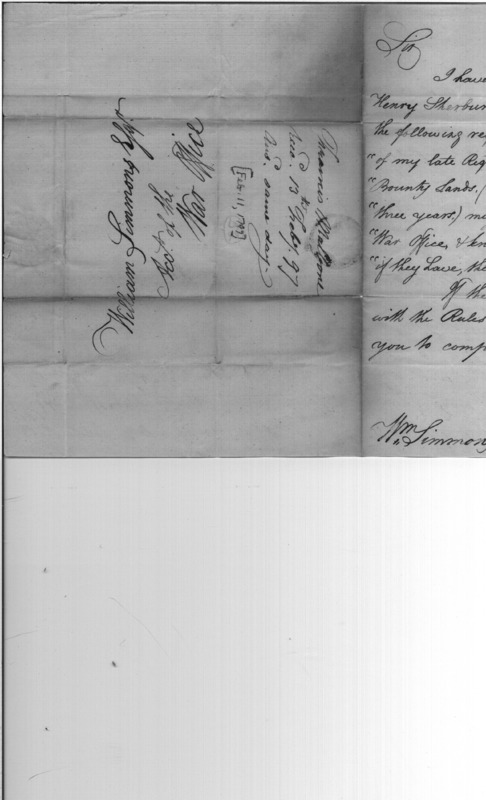 William Simmons Esqr
Acct of the
War Office
Francis
Recd 13th Feby 97
Ans. same day.
[FEB. 11, 1797]
Sir
I have
Henry Sherbur
the following re
"of my late Reg
"Bounty Lands,
"three years,) m
"War Office, & kn
"if they have, the
If the
with the Rules
you to comp
Wm Simmons